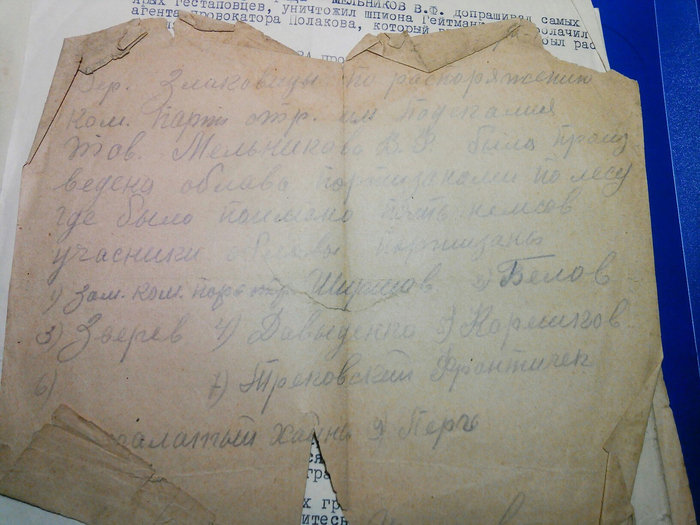 МЕЛЬНИКОВ В.Ф. допрашивал самых
ярых гестаповцев, уничтожил шпиона Гейтман
агента провокатора Полакова, который
был рас
Дер. Злаковцы по распоряжению
ком. парт отр. им
Тов. Мельникова В.Ф. была произ
ведена облава партизанами по лесу
где было паймано пять немсов
учасники облавы партизаны
1) Зам. ком. парт отр. Ширшов 2) Белов
3) Зверев 4) Давыденко 5) Карешков
6) 7) Трековский Франтичек
9) Перч